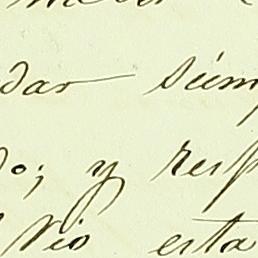 dar súm
o; y resp
Vio esta